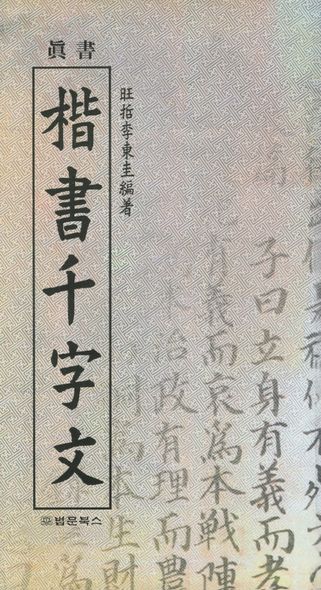 眞書
楷書千字文
旺哲李東圭編著
子曰立身有義而孝
有義而哀爲本戰陣
治政有理而農
本生財
법문북스